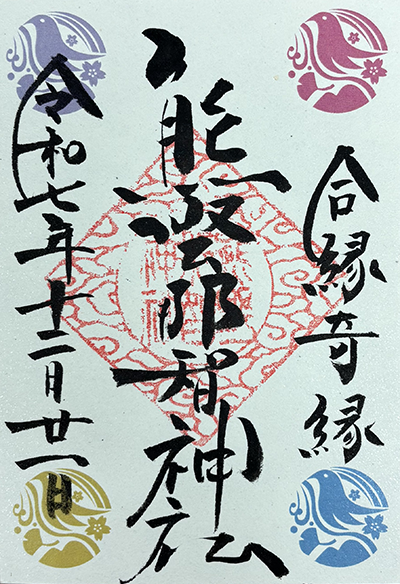 合縁奇縁
熊野那智神社
令和七年十二月廿一日